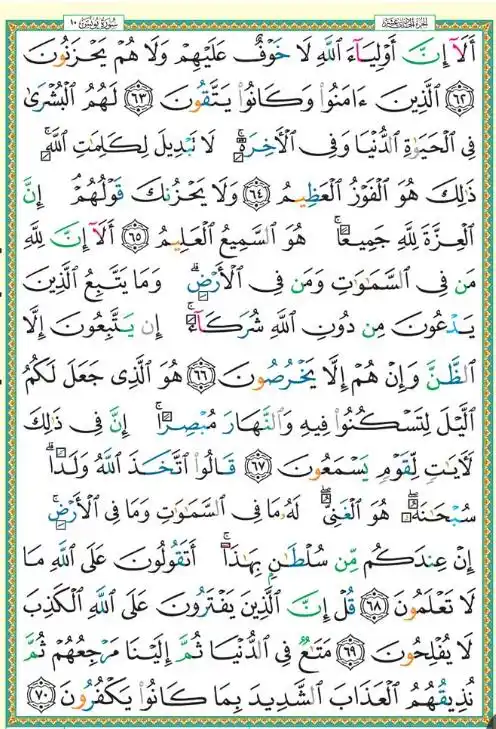 سُورَةُ يُونُسَ ١٠
أَلَآ إِنَّ أَوْلِيَآءَ ٱللَّهِ لَا خَوْفٌ عَلَيْهِمْ وَلَا هُمْ يَحْزَنُونَ
﴿٦٢﴾ ٱلَّذِينَ ءَامَنُوا۟ وَكَانُوا۟ يَتَّقُونَ ﴿٦٣﴾ لَهُمُ ٱلْبُشْرَىٰ
فِى ٱلْحَيَوٰةِ ٱلدُّنْيَا وَفِى ٱلْـَٔاخِرَةِ ۚ لَا تَبْدِيلَ لِكَلِمَٰتِ ٱللَّهِ ۚ
ذَٰلِكَ هُوَ ٱلْفَوْزُ ٱلْعَظِيمُ ﴿٦٤﴾ وَلَا يَحْزُنكَ قَوْلُهُمْ ۘ إِنَّ
ٱلْعِزَّةَ لِلَّهِ جَمِيعًا ۚ هُوَ ٱلسَّمِيعُ ٱلْعَلِيمُ ﴿٦٥﴾ أَلَآ إِنَّ لِلَّهِ
مَن فِى ٱلسَّمَٰوَٰتِ وَمَن فِى ٱلْأَرْضِ ۗ وَمَا يَتَّبِعُ ٱلَّذِينَ
يَدْعُونَ مِن دُونِ ٱللَّهِ شُرَكَآءَ ۚ إِن يَتَّبِعُونَ إِلَّا
ٱلظَّنَّ وَإِنْ هُمْ إِلَّا يَخْرُصُونَ ﴿٦٦﴾ هُوَ ٱلَّذِى جَعَلَ لَكُمُ
ٱلَّيْلَ لِتَسْكُنُوا۟ فِيهِ وَٱلنَّهَارَ مُبْصِرًا ۚ إِنَّ فِى ذَٰلِكَ
لَـَٔايَٰتٍ لِّقَوْمٍ يَسْمَعُونَ ﴿٦٧﴾ قَالُوا۟ ٱتَّخَذَ ٱللَّهُ وَلَدًا ۗ
سُبْحَٰنَهُۥ ۖ هُوَ ٱلْغَنِىُّ ۖ لَهُۥ مَا فِى ٱلسَّمَٰوَٰتِ وَمَا فِى ٱلْأَرْضِ ۚ
إِنْ عِندَكُم مِّن سُلْطَٰنٍۭ بِهَٰذَآ ۚ أَتَقُولُونَ عَلَى ٱللَّهِ مَا
لَا تَعْلَمُونَ ﴿٦٨﴾ قُلْ إِنَّ ٱلَّذِينَ يَفْتَرُونَ عَلَى ٱللَّهِ ٱلْكَذِبَ
لَا يُفْلِحُونَ ﴿٦٩﴾ مَتَٰعٌ فِى ٱلدُّنْيَا ثُمَّ إِلَيْنَا مَرْجِعُهُمْ ثُمَّ
نُذِيقُهُمُ ٱلْعَذَابَ ٱلشَّدِيدَ بِمَا كَانُوا۟ يَكْفُرُونَ ﴿٧٠﴾